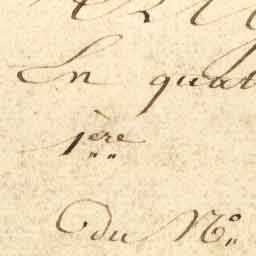 En quat
1ère
du No